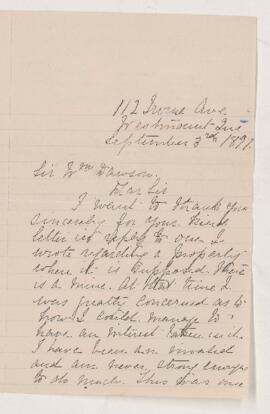 112 Irvine Ave.
Westmount Que
September 3rd 1897.
Sir Wm Dawson.
Dear Sir
I want to thank you
sincerely for your kind
letter in reply to one I
wrote regarding a property
where it is supposed there
is a mine. At that time I
was greatly concerned as to
how I could manage to
have an interest taken in it.
I have been an invalid
and am never strong enough
to do much. This was one